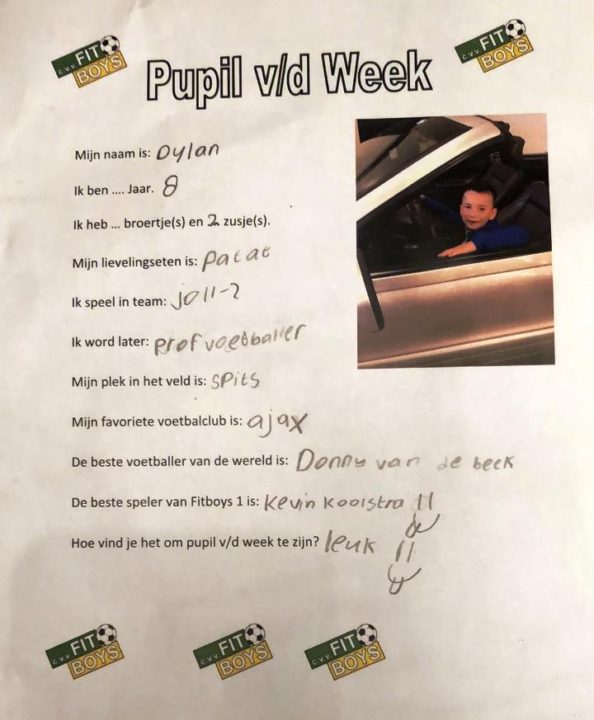 C.V.V. FIT BOYS
C.V.V. FIT BOYS
Pupil v/d Week
Mijn naam is: Dylan
Ik ben .... Jaar. 8
Ik heb ... broertje(s) en 2 zusje(s).
Mijn lievelingseten is: patat
Ik speel in team: jo11-2
Ik word later: prof voetballer
Mijn plek in het veld is: spits
Mijn favoriete voetbalclub is: ajax
De beste voetballer van de wereld is: Donny van de beek
De beste speler van Fitboys 1 is: kevin kooistra !!
Hoe vind je het om pupil v/d week te zijn? leuk !!
C.V.V. FIT BOYS
C.V.V. FIT BOYS
C.V.V. FIT BOYS